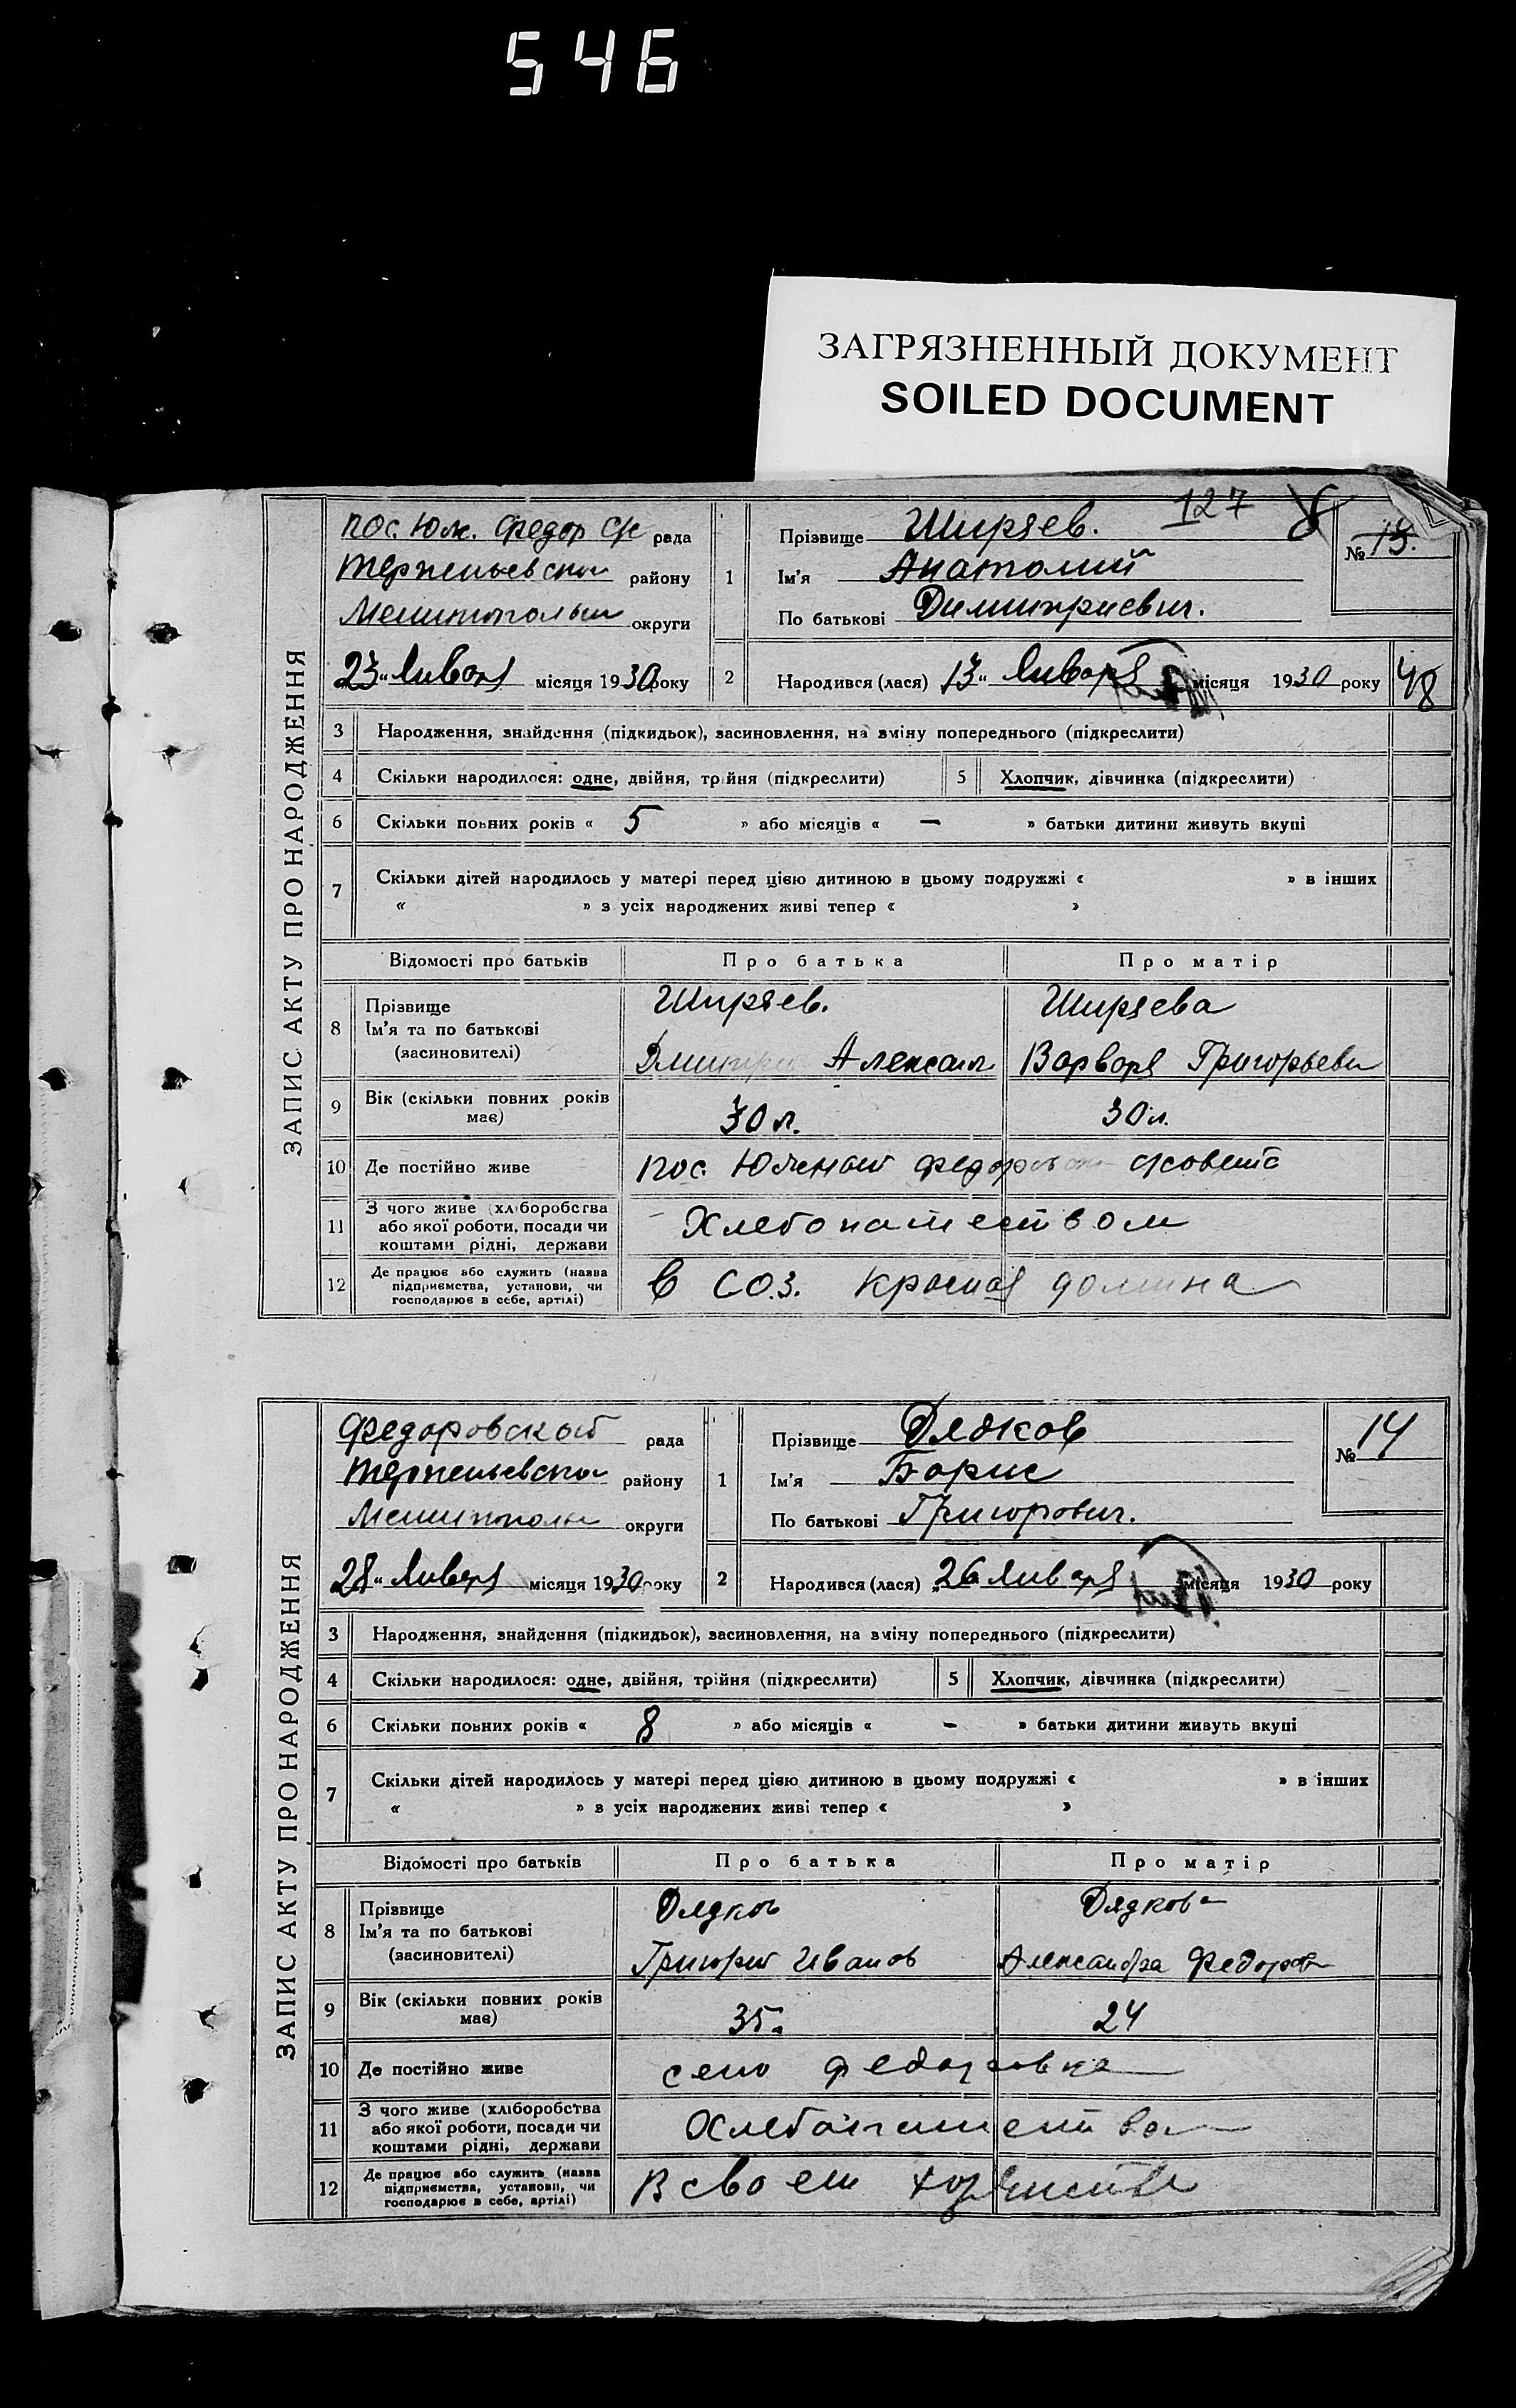 546
ЗАГРЯЗНЕННЫЙ ДОКУМЕНТ
SOILED DOCUMENT
127
ЗАПИС АКТУ ПРО НАРОДЖЕННЯ
пос. Юж. Федор с/с рада
району
округи
23 „ Января місяця 1930 року
1
Прізвище Ширяев.
Ім'я Анатолий
По батькові Димитриевич.
№ 13.
2
Народився (лася) 13 „ Января місяця 1930 року
48
3 Народження, знайдення (підкидьок), засиновлення, на зміну попереднього (підкреслити)
4 Скільки народилося: одне, двійня, трійня (підкреслити) 5 Хлопчик, дівчинка (підкреслити)
6 Скільки повних років « 5 » або місяців « — » батьки дитини живуть вкупі
7 Скільки дітей народилось у матері перед цією дитиною в цьому подружжі « » в інших
« » з усіх народжених живі тепер « »
Відомості про батьків Про батька Про матір
8 Прізвище
Ім'я та по батькові
(засиновителі)
Ширяев. Ширяева
Дмитрий Александ Варвара Григорьевн
9 Вік (скільки повних років має) 30 л. 30 л.
10 Де постійно живе пос. Южный Федоровск с/совета
11 З чого живе (хліборобства
або якої роботи, посади чи
коштами рідні, держави
Хлебопашеством
12 Де працює або служить (назва
підприємства, установи, чи
господарює в себе, артілі)
в СОЗ. Красная долина
ЗАПИС АКТУ ПРО НАРОДЖЕННЯ
Федоровской рада
району
округи
28 „ Января місяця 1930 року
1
Прізвище Дядков
Ім'я Борис
По батькові Григорович.
№ 14
2
Народився (лася) 26 Января місяця 1930 року
3 Народження, знайдення (підкидьок), засиновлення, на зміну попереднього (підкреслити)
4 Скільки народилося: одне, двійня, трійня (підкреслити) 5 Хлопчик, дівчинка (підкреслити)
6 Скільки повних років « 8 » або місяців « - » батьки дитини живуть вкупі
7 Скільки дітей народилось у матері перед цією дитиною в цьому подружжі « » в інших
« » з усіх народжених живі тепер « »
Відомості про батьків Про батька Про матір
8 Прізвище
Ім'я та по батькові
(засиновителі)
Дядков Дядкова
Григорий Иванов Александра Федоров
9 Вік (скільки повних років має) 35. 24
10 Де постійно живе село Федоровка
11 З чого живе (хліборобства
або якої роботи, посади чи
коштами рідні, держави
12 Де працює або служить (назва
підприємства, установи, чи
господарює в себе, артілі)
В своем хозяйстве